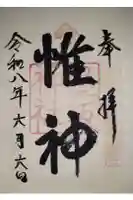 奉拝
惟神
令和八年六月六日